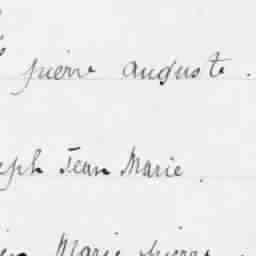 pierre auguste.
eph Jean Marie.
Marie pierre